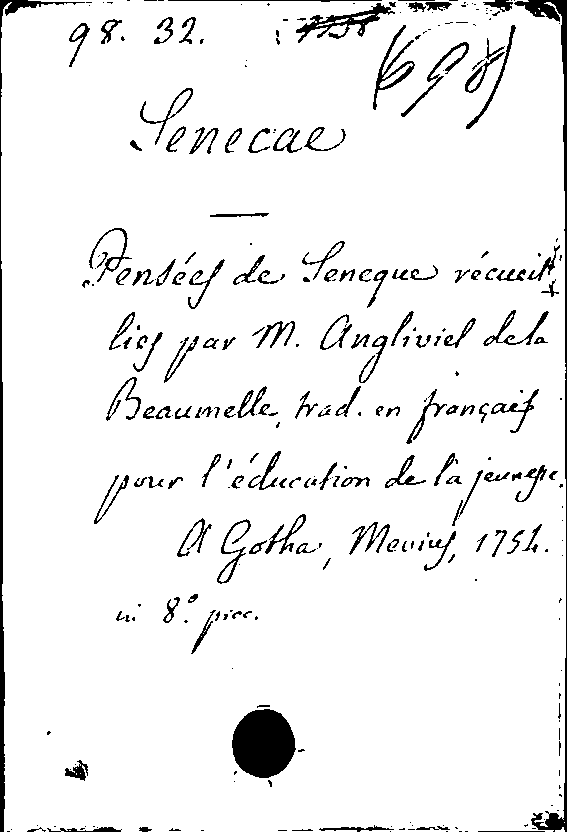 98. 32. (698)
Senecae
Pensées de Seneque récueil-
lies par M. Angliviel de la
Beaumelle, trad. en français
pour l'éducation de la jeunesse.
A Gotha, Mevius, 1754.
in 8.° picc.